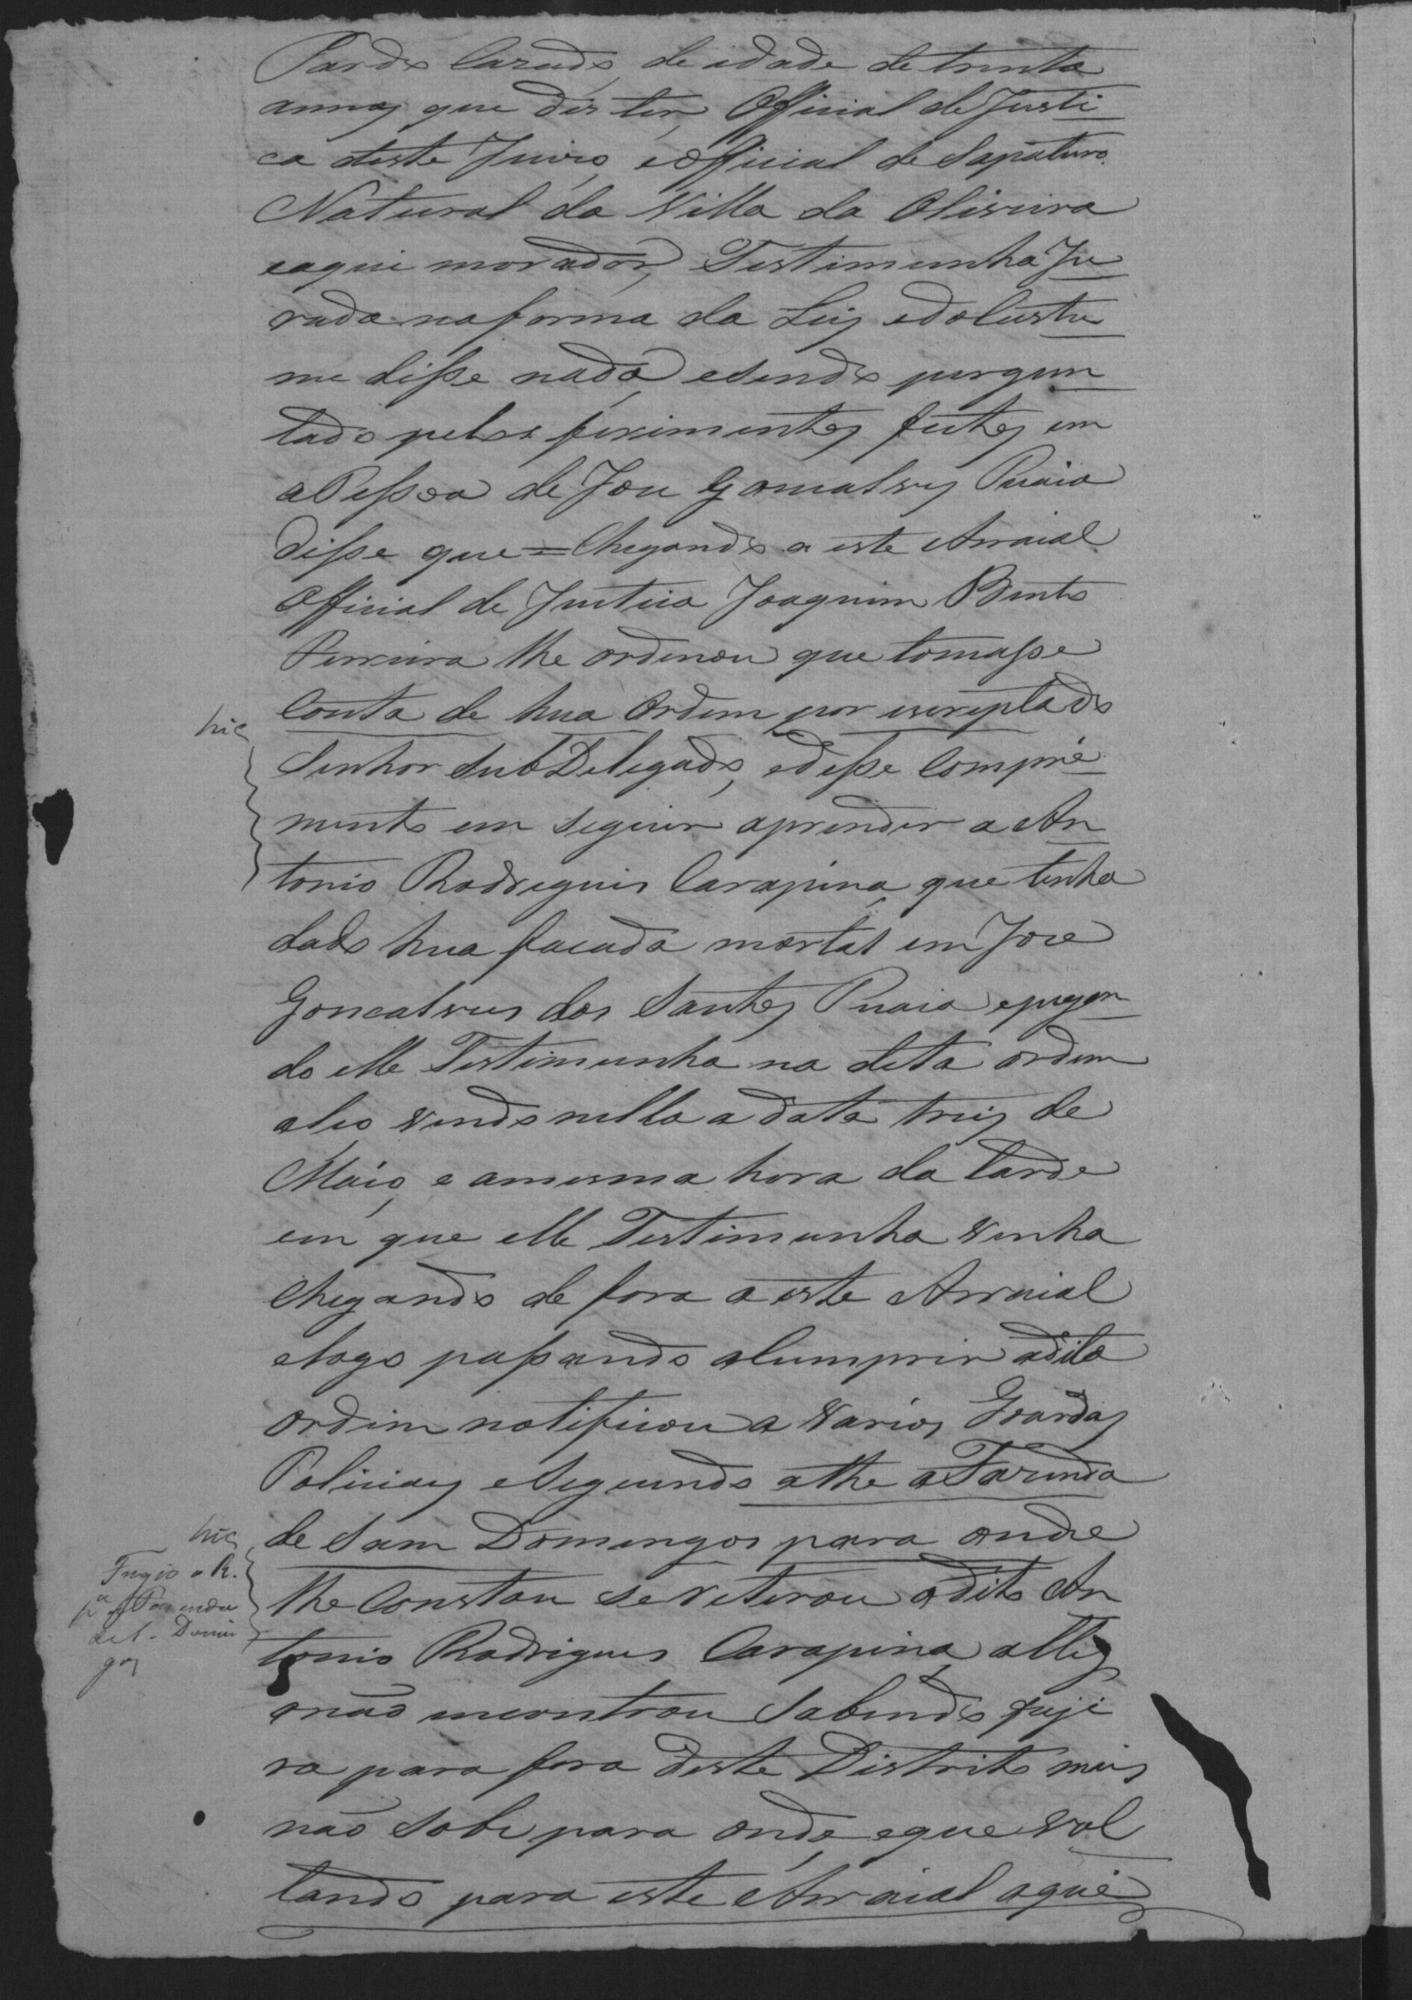 Pardo Cazado, de idade de trinta
annos que dis ser, Official de Justi
ca deste Juizo, e Official de Sapateiro
Natural da Villa da Oliveira
e aqui morador, Testimunha Ju
rada na forma da Ley e do Custu
me disse nada, e sendo pergun
tado pelos ferimentos feitos em
a Pessoa de Joze Goncalves Puaia
disse que = Chegando a este Arraial
Official de Justica Joaquim Bento
Ferreira lhe ordenou que tomasse
Conta de hua Ordem por escripta do
Senhor SubDelegado, e desse Compri
mento em seguir aprender a An
tonio Rodrigues Carapina, que tinha
dado hua facada mortal em Joze
Goncalves dos Santos Puaia e pegan
do elle Testimunha na dita ordem
a leo vendo nella a data tres de
Maio, e a mesma hora da tarde
em que elle Testimunha vinha
chegando de fora a este Arraial
e logo passando a Cumprir a dita
ordem notificou a varios Guardas
Policiaes e Seguindo athe a Fazenda
de Sam Domingos para onde
lhe Constou se retirou o dito An
tonio Rodrigues Carapina, alli
o não encontrou Sabendo fugi
ra para fora deste Distrito mais
não Sabe para onde, e que vol
tando para este Arraial aqui
hic
hic
Fugio o R.
pª a Fazenda
de S. Domin
gos